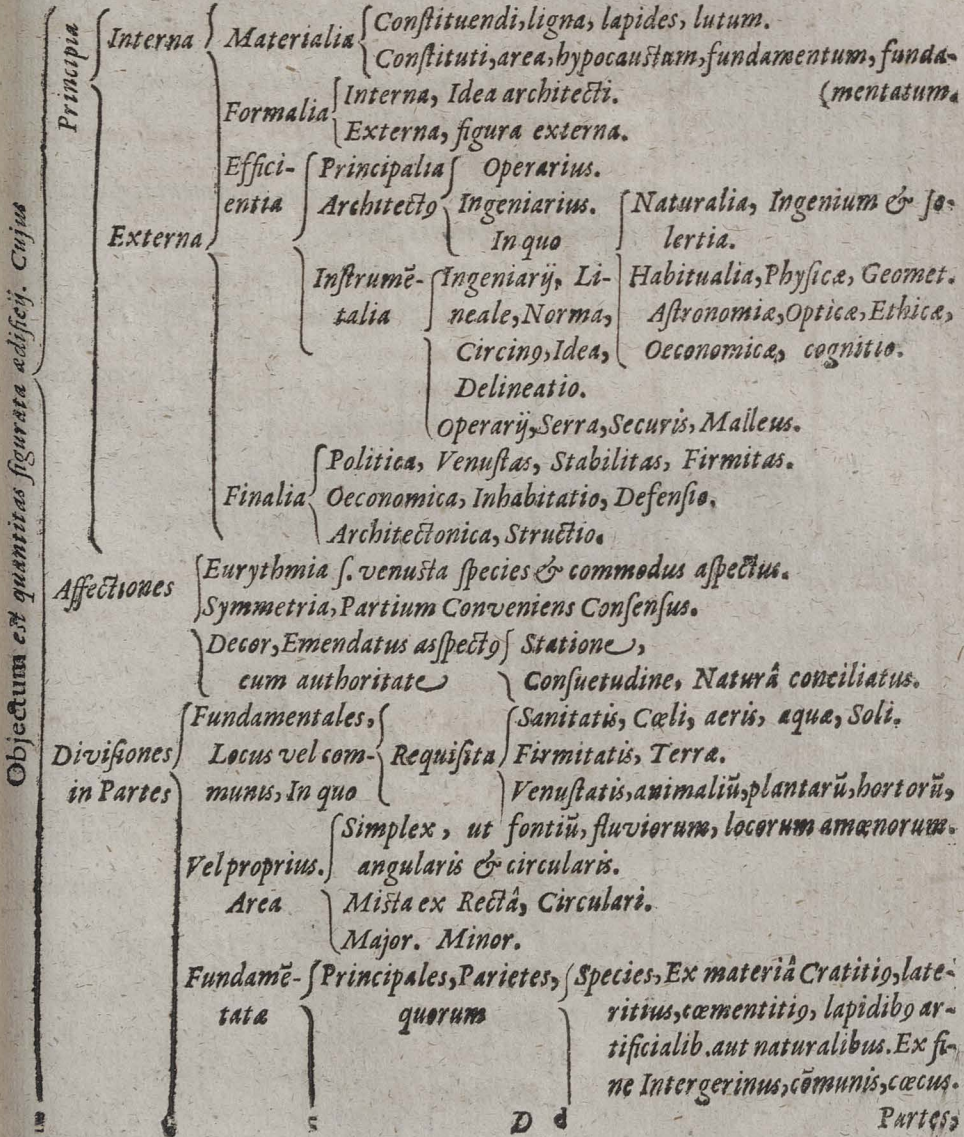 Objectum est quantitas figurata ædificij. Cujus
Principia
Interna
Materialia
Constituendi, ligna, lapides, lutum.
Constituti, area, hypocaustum, fundamentum, funda-
(mentatum.
Formalia
Interna, Idea architecti.
Externa, figura externa.
Externa
Effici-
entia
Principalia
Architectꝰ
Operarius.
Ingeniarius.
In quo
Naturalia, Ingenium & so-
lertia.
Habitualia, Physicæ, Geomet.
Astronomiæ, Opticæ, Ethicæ,
Oeconomicæ, cognitio.
Instrumẽ-
talia
Ingeniarij, Li-
neale, Norma,
Circinꝰ, Idea,
Delineatio.
Operarij, Serra, Securis, Malleus.
Finalia
Politica, Venustas, Stabilitas, Firmitas.
Oeconomica, Inhabitatio, Defensio.
Architectonica, Structio.
Affectiones
Eurythmia s. venusta species & commodus aspectus.
Symmetria, Partium Conveniens Consensus.
Decor, Emendatus asspectꝰ
cum authoritate
Statione,
Consuetudine, Naturâ conciliatus.
Divisiones
in Partes
Fundamentales,
Locus vel com-
munis, In quo
Requisita
Sanitatis, Cœli, aeris, aquæ, Soli.
Firmitatis, Terræ.
Venustatis, animaliũ, plantarũ, hortorũ,
Vel proprius.
Area
Simplex, ut fontiũ, fluviorum, locorum amœnorum.
angularis & circularis.
Mista ex Rectâ, Circulari.
Major. Minor.
Fundamẽ-
tatæ
Principales, Parietes,
quorum
Species, Ex materiâ Cratitiꝰ, late-
ritius, cœmentitiꝰ, lapidibꝰ ar-
tificialib. aut naturalibus. Ex fi-
ne Intergerinus, cõmunis, cæcus.
D d
Partes,